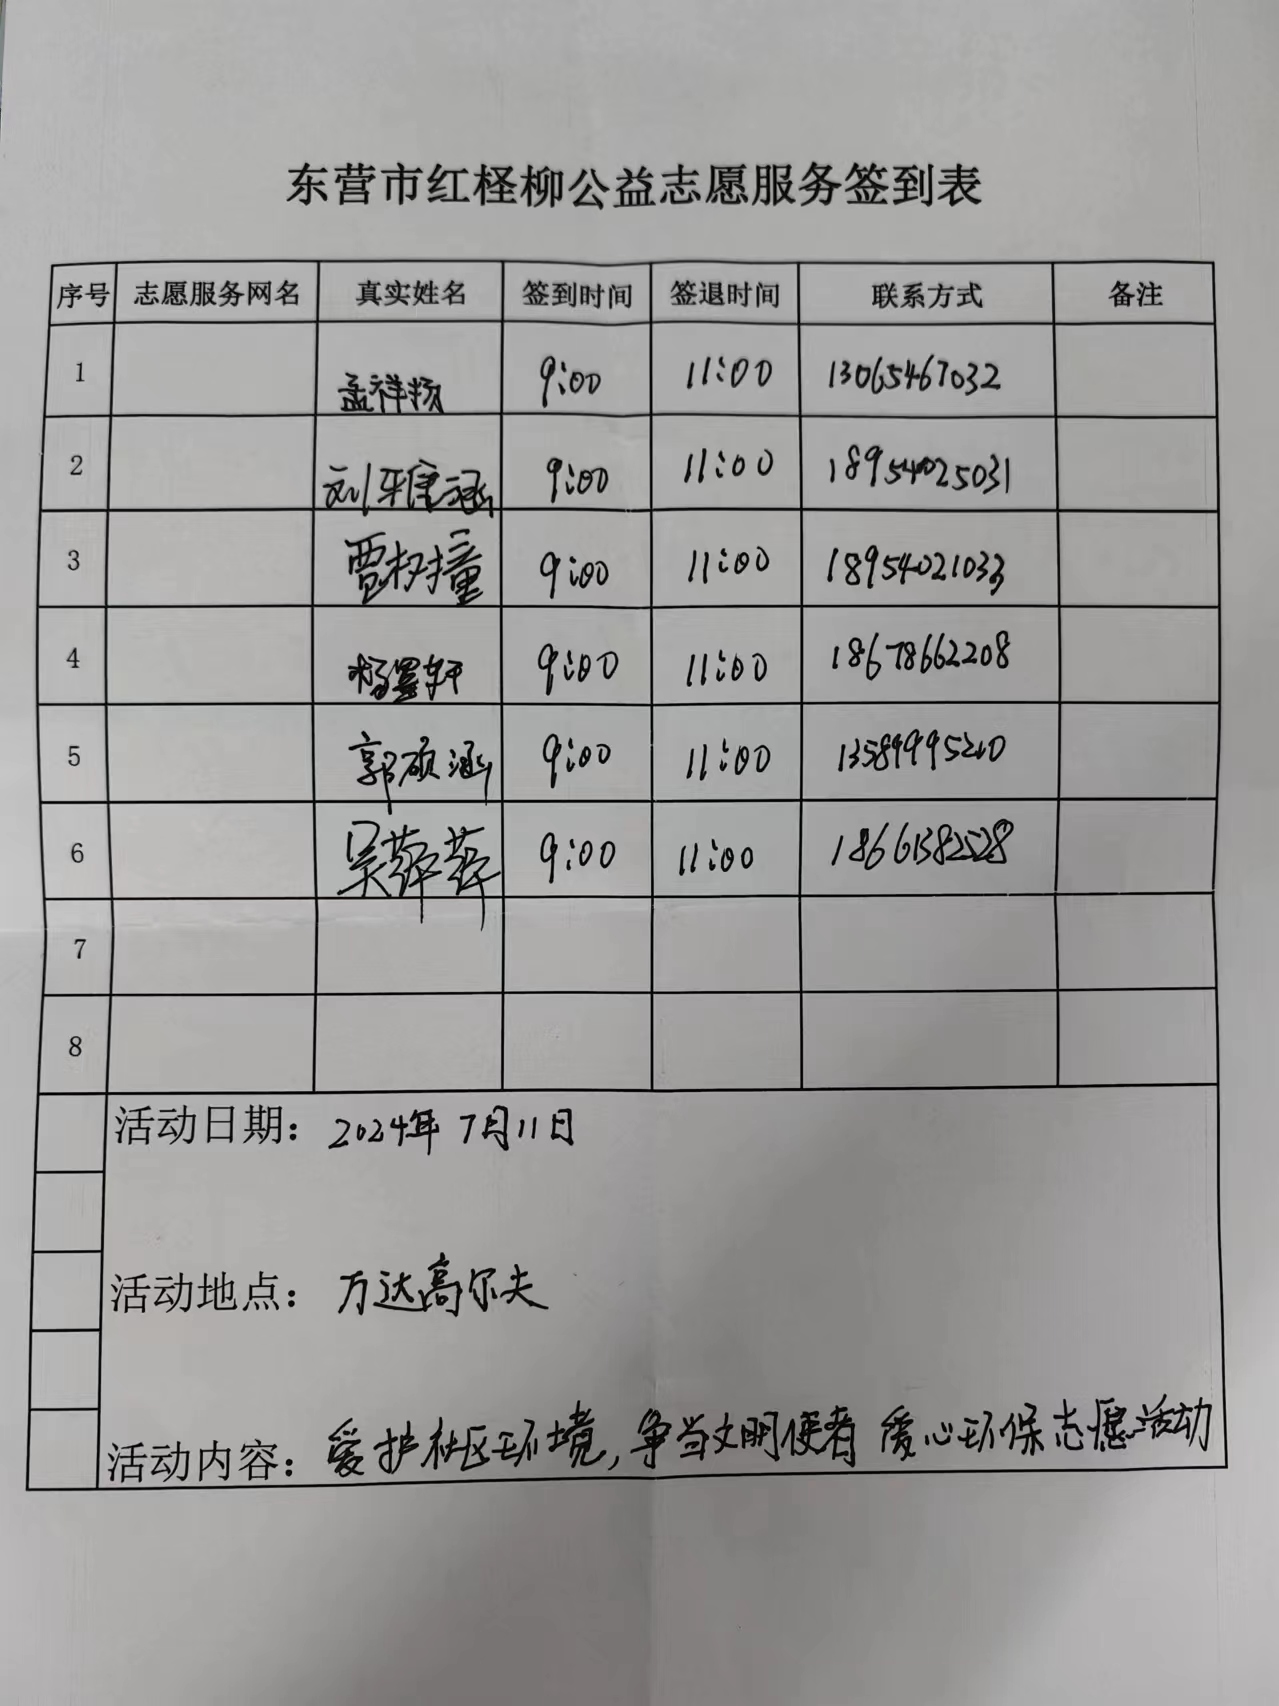 东营市红柽柳公益志愿服务签到表
序号 志愿服务网名 真实姓名 签到时间 签退时间 联系方式 备注
1 孟祥扬 9:00 11:00 13065467032
2 刘 涵 9:00 11:00 18954025031
3 贾 9:00 11:00 18954021033
4 杨墨轩 9:00 11:00 18678662208
5 郭硕涵 9:00 11:00 13589995210
6 吴萍萍 9:00 11:00 18661382528
7
8
活动日期：2024年7月11日
活动地点：万达高尔夫
活动内容：爱护社区环境，争当文明使者 爱心环保志愿活动